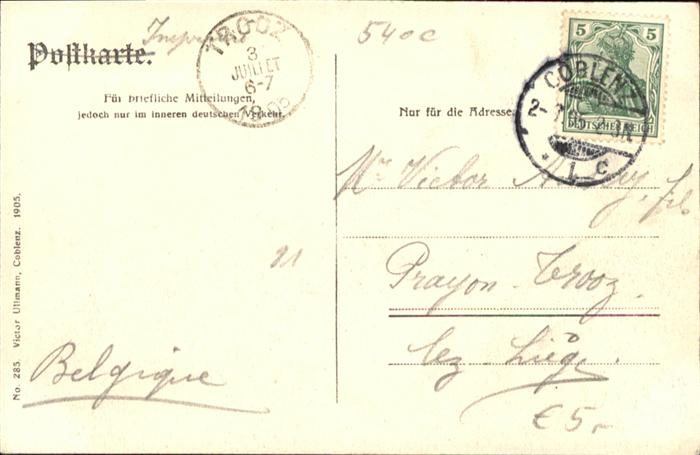 Postkarte.
TROOZ
3
JUILLET
6-7
1905
Für briefliche Mitteilungen,
jedoch nur im inneren deutschen Verkehr.
No. 285. Victor Ullmann, Coblenz. 1905.
21
Belgique
5400
5 5
DEUTSCHES REICH
COBLENZ
* 1 C
Nur für die Adresse.
Mr Victor
Prayon-Trooz
lez Liège.
€5,-